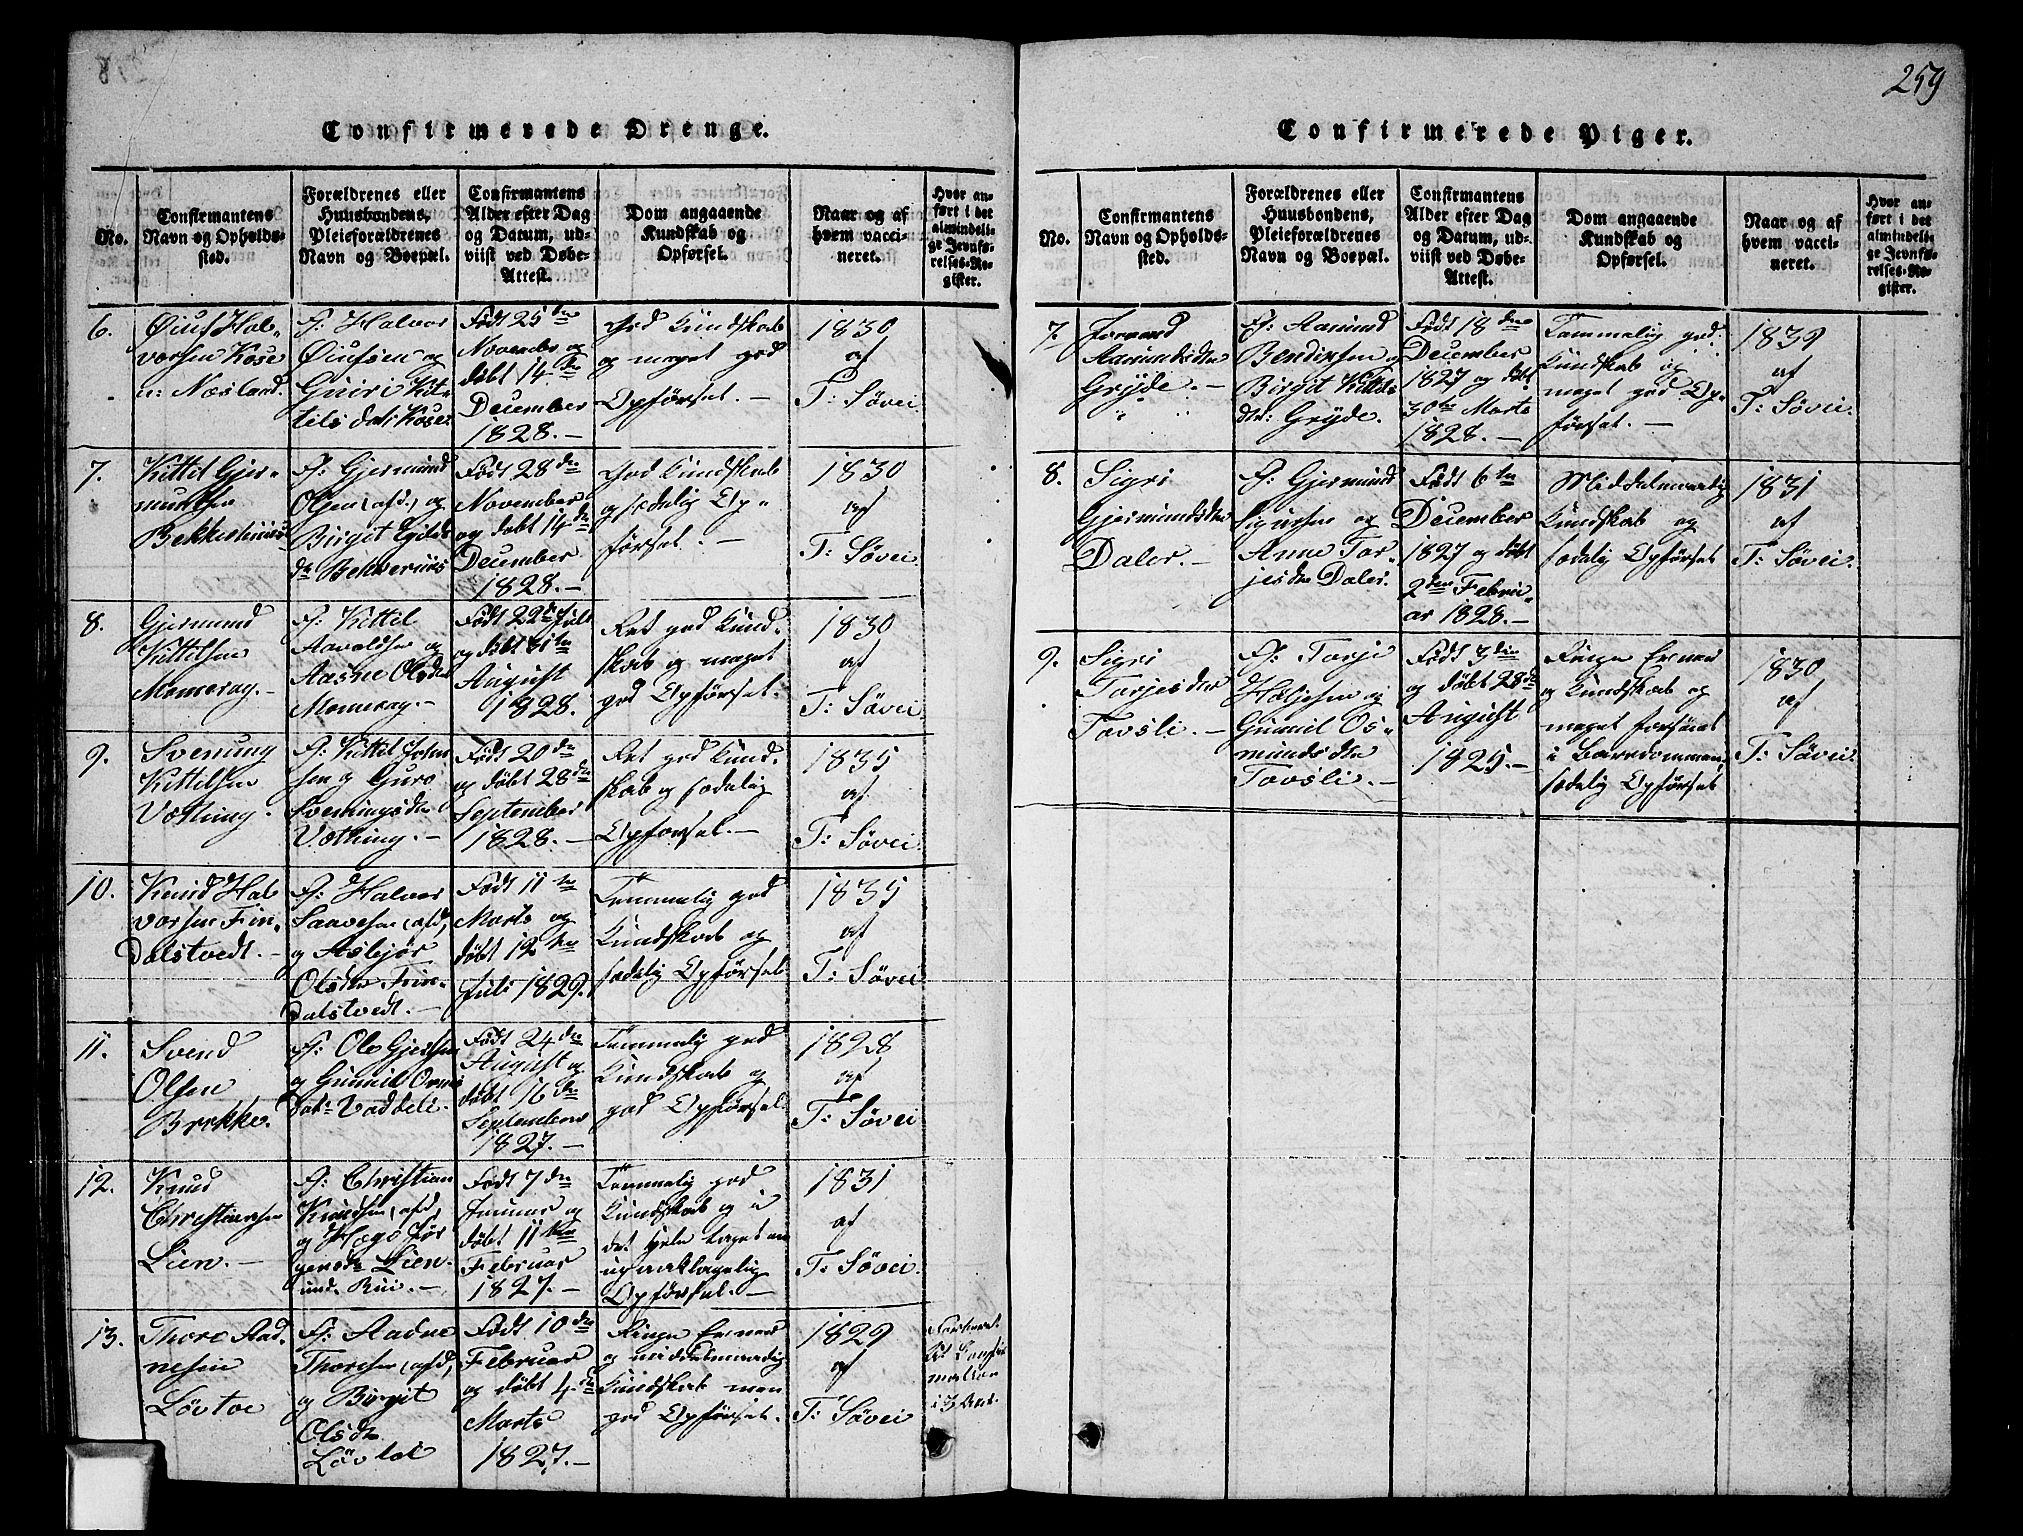 259
Confirmerede Drenge.
No.
Confirmantens
Navn og Opholds-
sted.
Forældrenes eller
Huusbondens,
Pleieforældrenes
Navn og Boepæl.
Confirmantens
Alder efter Dag
og Datum, ud-
viist ved Døbe-
Attest.
Dom angaaende
Kundskab og
Opførsel.
Naar og af
hvem vacci-
neret.
Hvor an-
ført i det
almindeli-
ge Jevnfø-
relses-Re-
gister.
6.
Øiuf Hal-
vorsen Kose
u: Næsland.
F: Halvor
Øiufsen og
Guiri Kit-
tilsdatr Kose
Født 25de
November og
døbt 14de
December
1828. —
God Kundskab
og meget god
Opførsel. —
1830
af
T: Søvei
7.
Kittil Gjer-
mundsen
Bekkerhuus
F: Gjermund
Olsen (afd.) og
Birgit
Født 28de
November
og døbt 14de
December
1828. —
God Kundskab
og sædelig Op-
førsel. —
1830
af
T: Søvei
8.
Gjermund
Kittilsen
Momrag. —
F: Kittil
Aavaldsen og
Aasne Olsdr
Momrag. —
Født 22de Juli
og døbt
August
1828.
Ret god Kund-
skab og meget
god Opførsel. —
1830
af
T: Søvei
9.
Svenung
Kittilsen
Vothung.
F: Kittil John-
sen og Guro
Svenungsdr
Vothung. —
Født 20de
og døbt 28de
September
1828. —
Ret god Kund-
skab og sædelig
Opførsel. —
1835
af
T: Søvei
10.
Knud Hal-
vorsen Fin-
dalstvedt. —
F: Halvor
Saavesen (afd.)
og Asbjør
Olsdr Fin-
dalstvedt. —
Født 11te
Marts og
døbt 12te
Juli 1829.
Temmelig god
Kundskab og
sædelig Opførsel
1835
af
T: Søvei
11.
Svend
Olsen
Brekke.
F: Ole
og Gunnil
Vaddeli.
Født 24de
August og
døbt 16de
September
1827. —
Temmelig god
Kundskab og
god Opførsel
1828
af
T: Søvei
12.
Knud
Christiansen
Lien. —
F: Christian
Knudsen (afd.)
og Hæge Jør-
gensdr Lien
und. Rui. —
Født 7de
Januar og
døbt 11te
Februar
1827. —
Temmelig god
Kundskab og i
det hele taget en
upaaklagelig
Opførsel. —
1831
af
T: Søvei
13.
Thore Aad-
nesen
Løvtoe
F: Aadne
Thoresen (afd.)
og Birgit
Olsdr
Født 10de
Februar
og døbt 4de
Marts
1827. —
Ringe Evner
og middelmaadig
Kundskab men
god Opførsel. —
1829
af
T: Søvei
i 3 Aar.
Confirmerede Piger.
No.
Confirmantens
Navn og Opholds-
sted.
Forældrenes eller
Huusbondens,
Pleieforældrenes
Navn og Boepæl.
Confirmantens
Alder efter Dag
og Datum, ud-
viist ved Døbe-
Attest.
Dom angaaende
Kundskab og
Opførsel.
Naar og af
hvem vacci-
neret.
Hvor an-
ført i det
almindeli-
ge Jevnfø-
relses-Re-
gister.
7.
Aamundsdtr
Gryde. —
F: Aamund
Bendixsen og
Birgit Kittils-
dtr: Gryde.
Født 18de
December
1827 og døbt
30te Marts
1828. —
Temmelig god
Kundskab og
meget god Op-
førsel. —
1839
af
T: Søvei.
8.
Sigri
Gjermundsdtr
Daler. —
F: Gjermund
Sigursen og
Anne Tor-
jesdtr Daler.
Født 6te
December
1827 og døbt
2den Febru-
ar 1828. —
Middelmaadig
Kundskab og
sædelig Opførsel
1831
af
T: Søvei.
9.
Sigri
Torjesdtr
Tovsli. —
F: Torje
Høljesen og
Gunnil Os-
mundsdtr
Tovsli. —
Født 3die
og døbt 28de
August
1825. —
Ringe Evner
og Kundskab og
meget forsømt
i Barndommen,
sædelig Opførsel
1830
af
T: Søvei.